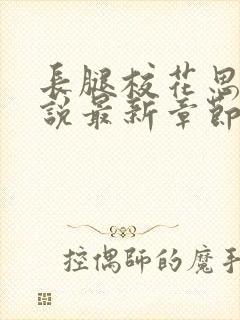 長腿校花思
說最新章節
控偶師的魔手